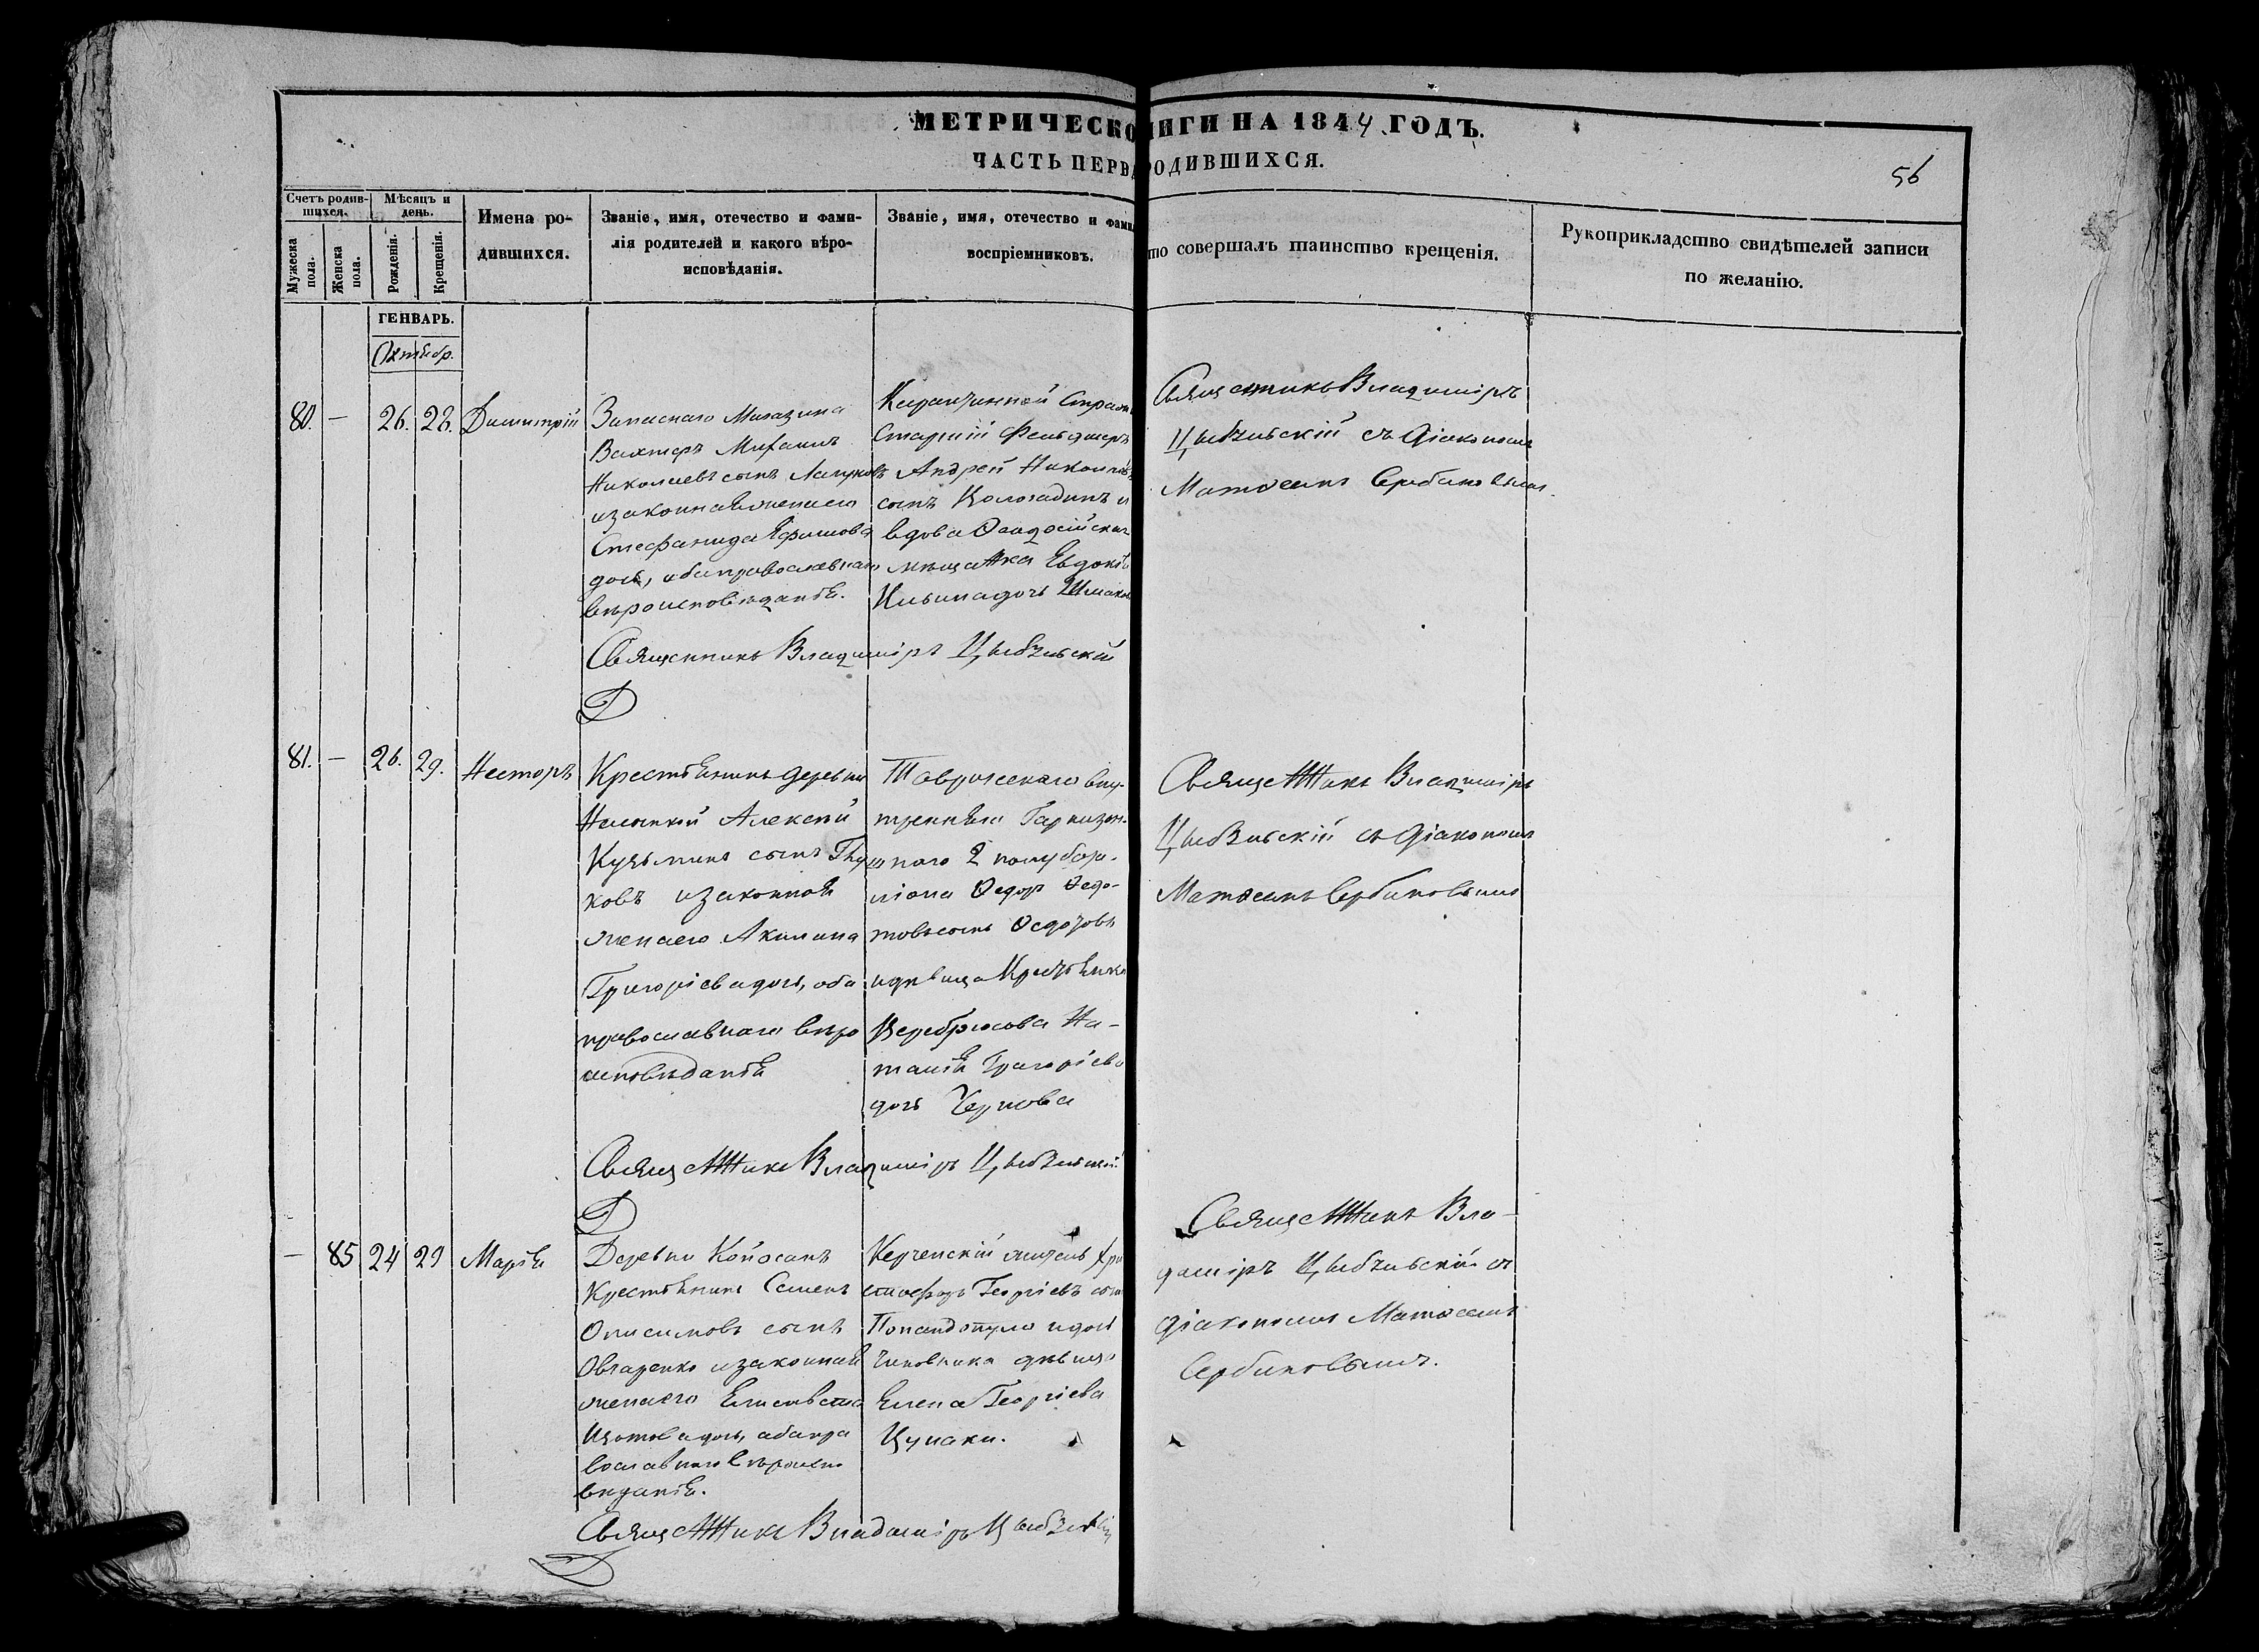 МЕТРИЧЕСКО ИГИ НА 1844 ГОДЪ.
ЧАСТЬ ПЕРВА РОДИВШИХСЯ.
56
Счетъ родив-
шихся.
Мужеска
пола.
Женска
пола.
Мѣсяцъ и
день.
Рожденія.
Крещенія.
Имена ро-
дившихся.
Званіе, имя, отечество и фами-
лія родителей и какого вѣро-
исповѣданія.
Званіе, имя, отечество и фами
воспріемниковъ.
то совершалъ таинство крещенія.
Рукоприкладство свидѣтелей записи
по желанію.
ГЕНВАРЬ.
Октябр.
80. — 26. 28. Димитрій
Запаснаго Магазина
Вахтеръ Михаилъ
Николаевъ сынъ
изаконная женаего
Стефанида Ефимова
дочь, оба православнаго
вѣроисповѣданія.
Карантинной Страж
Старшій Фельдшеръ
Андрей Николаевъ
сынъ и
вдова Ѳеодосійская
мѣщанка Евдокія
Ильина дочь
Священникъ Владиміръ
съ Діакономъ
Матѳеемъ Сербиновымъ.
Священникъ Владиміръ
81. — 26. 29. Несторъ
Крестьянинъ деревни
Алексѣй
Кузьминъ сынъ
ковъ изаконная
женаего Акилина
Григоріева дочь, оба
православнаго вѣро
исповѣданія
Таврическаго вну-
тренняго Гарнизон-
наго 2 полубата-
ліона Ѳедоръ Ѳедо-
товъ сынъ Ѳедотовъ
идѣвица Крестьянка
Серебрякова На-
талія Григоріева
дочь Чернова
Священникъ Владиміръ
съ Діакономъ
Матѳеемъ Сербиновымъ
Священникъ Владиміръ
— 85 24 29 Марія
Деревни Койасанъ
Крестьянинъ Семенъ
Онисимовъ сынъ
Овчаренко изаконная
женаего Елисавета
Изотова дочь, оба пра
вославнаго вѣроиспо
вѣданія.
Керченскій житель Хри
стофоръ Георгіевъ сынъ
Попандопуло идочь
Чиновника дѣвица
Елена Георгіева
Цунаки.
Священникъ Вла-
диміръ съ
діакономъ Матѳеемъ
Сербиновымъ.
Священникъ Владиміръ